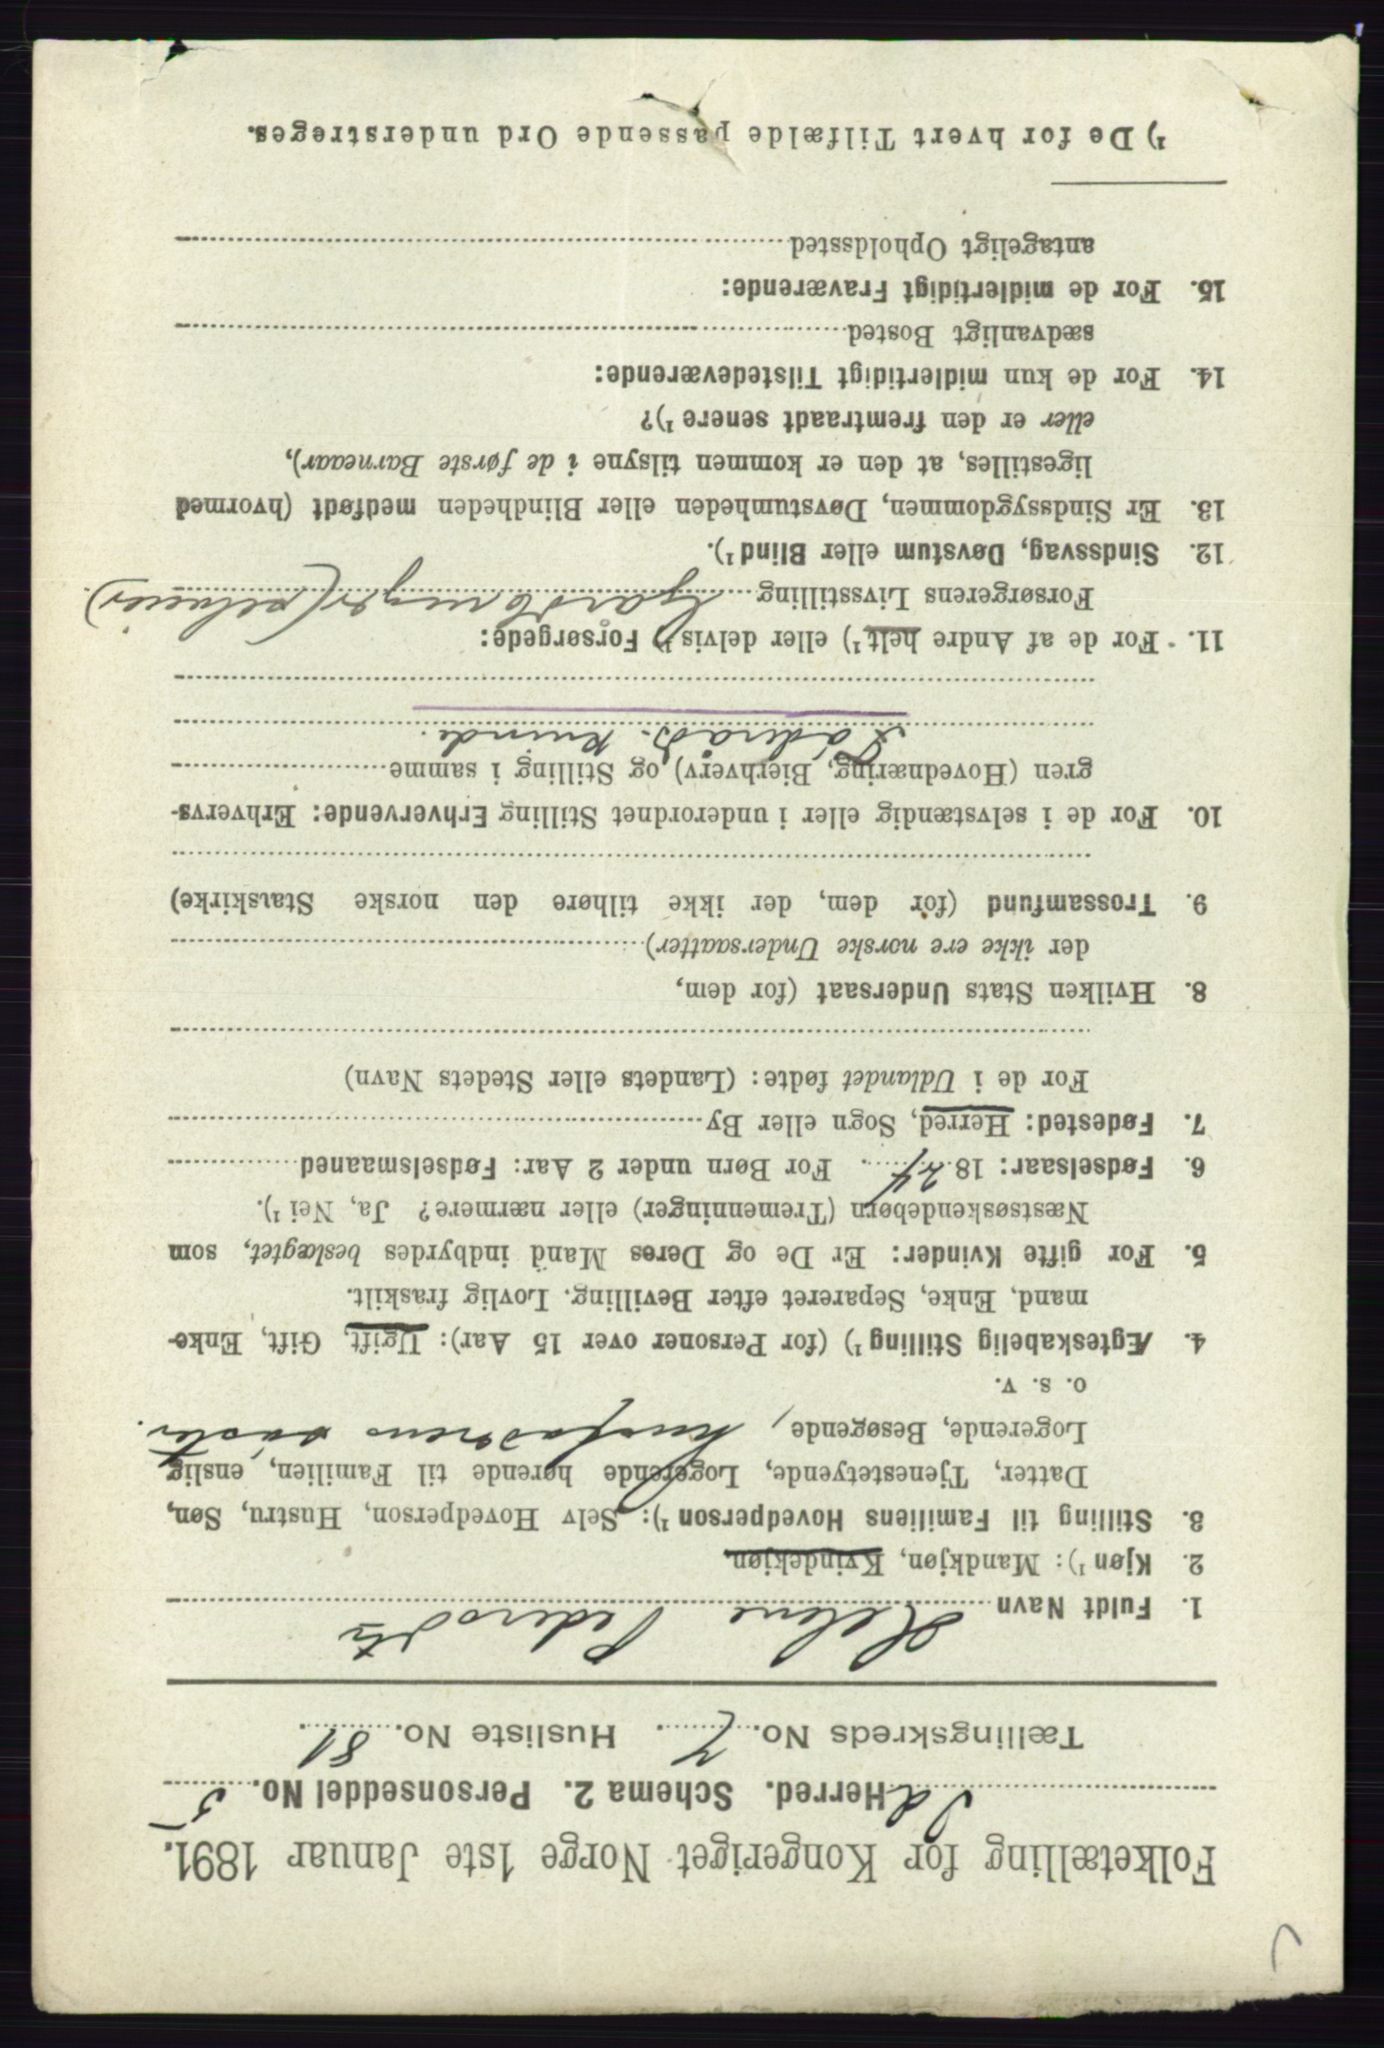 Folketælling for Kongeriget Norge 1ste Januar 1891.
Id Herred. Schema 2. Personseddel No. 5
Tællingskreds No. 7. Husliste No. 81.
1. Fuldt Navn Helene Pedersdtr
2. Kjøn ¹): Mandkjøn, Kvindekjøn.
3. Stilling til Familiens Hovedperson ¹): Selv Hovedperson, Hustru, Søn,
Datter, Tjenestetyende, Logerende hørende til Familien, enslig
Logerende, Besøgende, husfadrens søster.
o. s. v.
4. Ægteskabelig Stilling ¹) (for Personer over 15 Aar): Ugift, Gift, Enke-
mand, Enke, Separeret efter Bevilling. Lovlig fraskilt.
5. For gifte Kvinder: Er De og Deres Mand indbyrdes beslægtet, som
Næstsøskendebørn (Tremenninger) eller nærmere? Ja, Nei ¹).
6. Fødselsaar: 1824. For Børn under 2 Aar: Fødselsmaaned
7. Fødested: Herred, Sogn eller By
For de i Udlandet fødte: (Landets eller Stedets Navn)
8. Hvilken Stats Undersaat (for dem,
der ikke ere norske Undersaatter)
9. Trossamfund (for dem, der ikke tilhøre den norske Statskirke)
10. For de i selvstændig eller i underordnet Stilling Erhvervende: Erhvervs-
gren (Hovednæring, Bierhverv) og Stilling i samme
Føderåds. kvinde.
11. For de af Andre helt ¹) eller delvis ¹) Forsørgede:
Forsørgerens Livsstilling Gardbruger (selveier)
12. Sindssvag, Døvstum eller Blind ¹).
13. Er Sindssygdommen, Døvstumheden eller Blindheden medfødt (hvormed
ligestilles, at den er kommen tilsyne i de første Barneaar),
eller er den fremtraadt senere ¹)?
14. For de kun midlertidigt Tilstedeværende:
sædvanligt Bosted
15. For de midlertidigt Fraværende:
antageligt Opholdssted
¹) De for hvert Tilfælde passende Ord understreges.